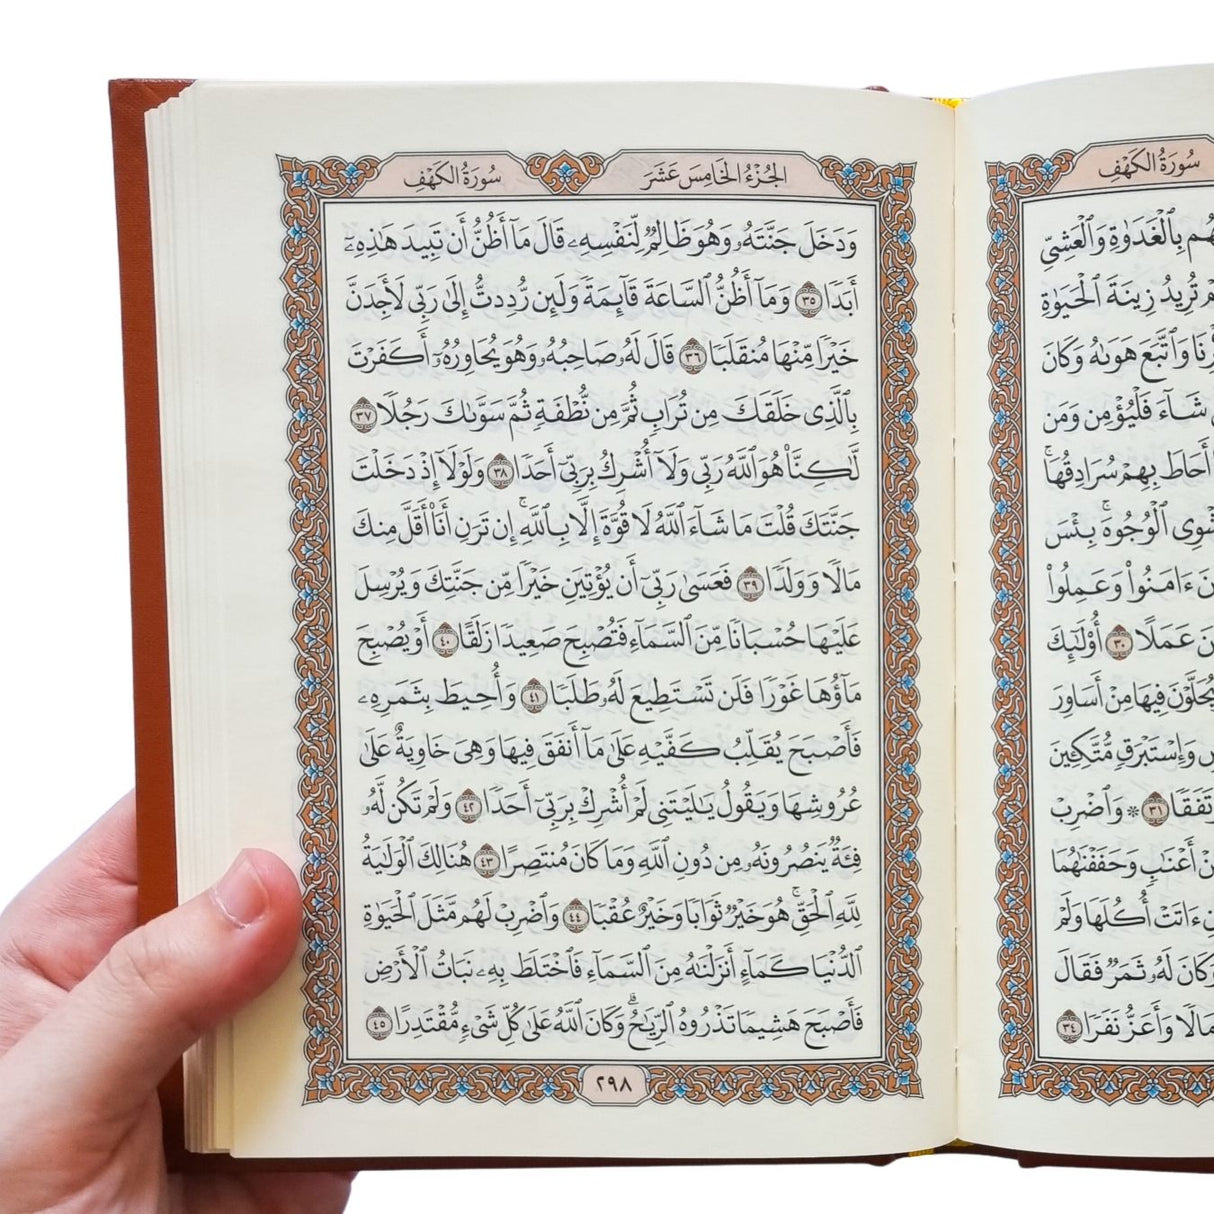 سُورَةُ الكَهْفِ
بِٱلْغَدَوٰةِ وَٱلْعَشِىِّ
تُرِيدُ زِينَةَ ٱلْحَيَوٰةِ
وَٱتَّبَعَ هَوَىٰهُ وَكَانَ
شَآءَ فَلْيُؤْمِن وَمَن
أَحَاطَ بِهِمْ سُرَادِقُهَا ۚ
ٱلْوُجُوهَ ۚ بِئْسَ
ءَامَنُوا۟ وَعَمِلُوا۟
عَمَلًا ٣٠ أُو۟لَٰٓئِكَ
يُحَلَّوْنَ فِيهَا مِنْ أَسَاوِرَ
وَإِسْتَبْرَقٍ مُّتَّكِـِٔينَ
٣١ * وَٱضْرِبْ
أَعْنَٰبٍ وَحَفَفْنَٰهُمَا
ءَاتَتْ أُكُلَهَا وَلَمْ
وَكَانَ لَهُۥ ثَمَرٌ فَقَالَ
مَالًا وَأَعَزُّ نَفَرًا ٣٤
الجُزْءُ الخَامِسَ عَشَرَ سُورَةُ الكَهْفِ
وَدَخَلَ جَنَّتَهُۥ وَهُوَ ظَالِمٌ لِّنَفْسِهِۦ قَالَ مَآ أَظُنُّ أَن تَبِيدَ هَٰذِهِۦٓ
أَبَدًا ٣٥ وَمَآ أَظُنُّ ٱلسَّاعَةَ قَآئِمَةً وَلَئِن رُّدِدتُّ إِلَىٰ رَبِّى لَأَجِدَنَّ
خَيْرًا مِّنْهَا مُنقَلَبًا ٣٦ قَالَ لَهُۥ صَاحِبُهُۥ وَهُوَ يُحَاوِرُهُۥٓ أَكَفَرْتَ
بِٱلَّذِى خَلَقَكَ مِن تُرَابٍ ثُمَّ مِن نُّطْفَةٍ ثُمَّ سَوَّىٰكَ رَجُلًا ٣٧
لَّٰكِنَّا۠ هُوَ ٱللَّهُ رَبِّى وَلَآ أُشْرِكُ بِرَبِّىٓ أَحَدًا ٣٨ وَلَوْلَآ إِذْ دَخَلْتَ
جَنَّتَكَ قُلْتَ مَا شَآءَ ٱللَّهُ لَا قُوَّةَ إِلَّا بِٱللَّهِ ۚ إِن تَرَنِ أَنَا۠ أَقَلَّ مِنكَ
مَالًا وَوَلَدًا ٣٩ فَعَسَىٰ رَبِّىٓ أَن يُؤْتِيَنِ خَيْرًا مِّن جَنَّتِكَ وَيُرْسِلَ
عَلَيْهَا حُسْبَانًا مِّنَ ٱلسَّمَآءِ فَتُصْبِحَ صَعِيدًا زَلَقًا ٤٠ أَوْ يُصْبِحَ
مَآؤُهَا غَوْرًا فَلَن تَسْتَطِيعَ لَهُۥ طَلَبًا ٤١ وَأُحِيطَ بِثَمَرِهِۦ
فَأَصْبَحَ يُقَلِّبُ كَفَّيْهِ عَلَىٰ مَآ أَنفَقَ فِيهَا وَهِىَ خَاوِيَةٌ عَلَىٰ
عُرُوشِهَا وَيَقُولُ يَٰلَيْتَنِى لَمْ أُشْرِكْ بِرَبِّىٓ أَحَدًا ٤٢ وَلَمْ تَكُن لَّهُۥ
فِئَةٌ يَنصُرُونَهُۥ مِن دُونِ ٱللَّهِ وَمَا كَانَ مُنتَصِرًا ٤٣ هُنَالِكَ ٱلْوَلَٰيَةُ
لِلَّهِ ٱلْحَقِّ ۚ هُوَ خَيْرٌ ثَوَابًا وَخَيْرٌ عُقْبًا ٤٤ وَٱضْرِبْ لَهُم مَّثَلَ ٱلْحَيَوٰةِ
ٱلدُّنْيَا كَمَآءٍ أَنزَلْنَٰهُ مِنَ ٱلسَّمَآءِ فَٱخْتَلَطَ بِهِۦ نَبَاتُ ٱلْأَرْضِ
فَأَصْبَحَ هَشِيمًا تَذْرُوهُ ٱلرِّيَٰحُ ۗ وَكَانَ ٱللَّهُ عَلَىٰ كُلِّ شَىْءٍ مُّقْتَدِرًا ٤٥
٢٩٨